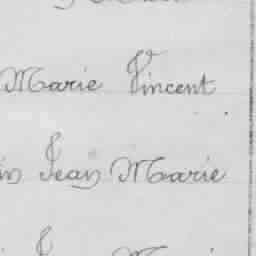 Marie Vincent
Jean Marie